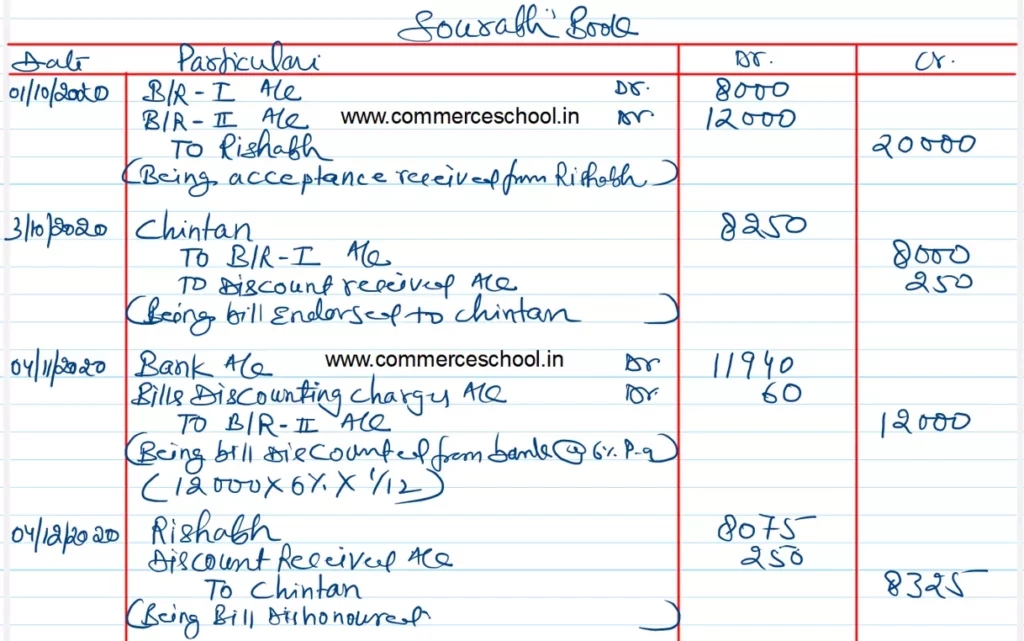 Sourabh' Book
Date Particulars Dr. Cr.
01/10/2020 B/R - I A/c Dr. 8000
B/R - II A/c www.commerceschool.in Dr. 12000
To Rishabh 20000
(Being acceptance received from Rishabh)
3/10/2020 Chintan 8250
To B/R - I A/c 8000
To Discount received A/c 250
(Being bill Endorsed to Chintan)
04/11/2020 Bank A/c www.commerceschool.in Dr 11940
Bills Discounting charges A/c Dr. 60
To B/R - II A/c 12000
(Being bill Discounted from bank @ 6% P.a)
(12000 X 6% X 1/12)
04/12/2020 Rishabh 8075
Discount Received A/c 250
To Chintan 8325
(Being Bill Dishonoured)